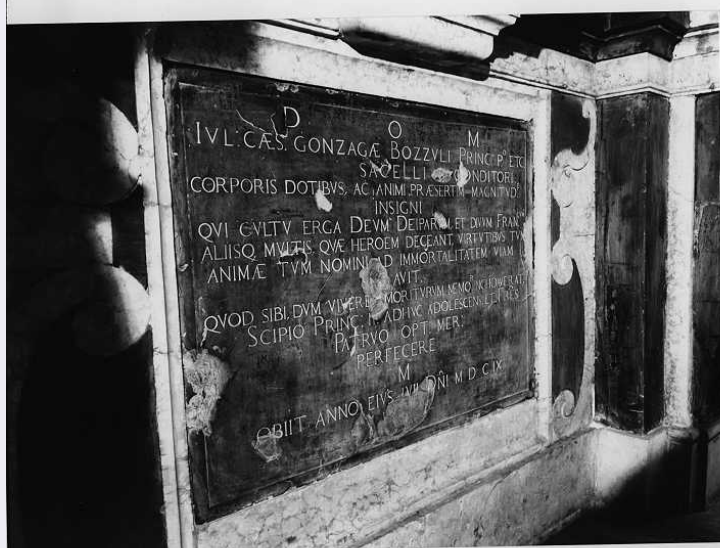 D O M
IVL. CÆS. GONZAGÆ BOZZVLI PRINCIP. ETC
SACELLI CONDITORI,
CORPORIS DOTIBVS, AC ANIMI PRÆSERTIM MAGNITVD.
INSIGNI
QVI CVLTV ERGA DEVM DEIPARAM, ET DIVVM FRAN.
ALIISQ. MVLTIS QVÆ HEROEM DECEANT VIRTVTIBVS TVM
ANIMÆ TVM NOMINI AD IMMORTALITATEM VIAM
AVIT.
QVOD SIBI, DVM VIVERET MORITVRVM NEMO
SCIPIO PRINC. ADHVC ADOLESCENS
PATRVO OPT. MER.
PERFECERE
M
OBIIT ANNO EIVS DNI M D C IX